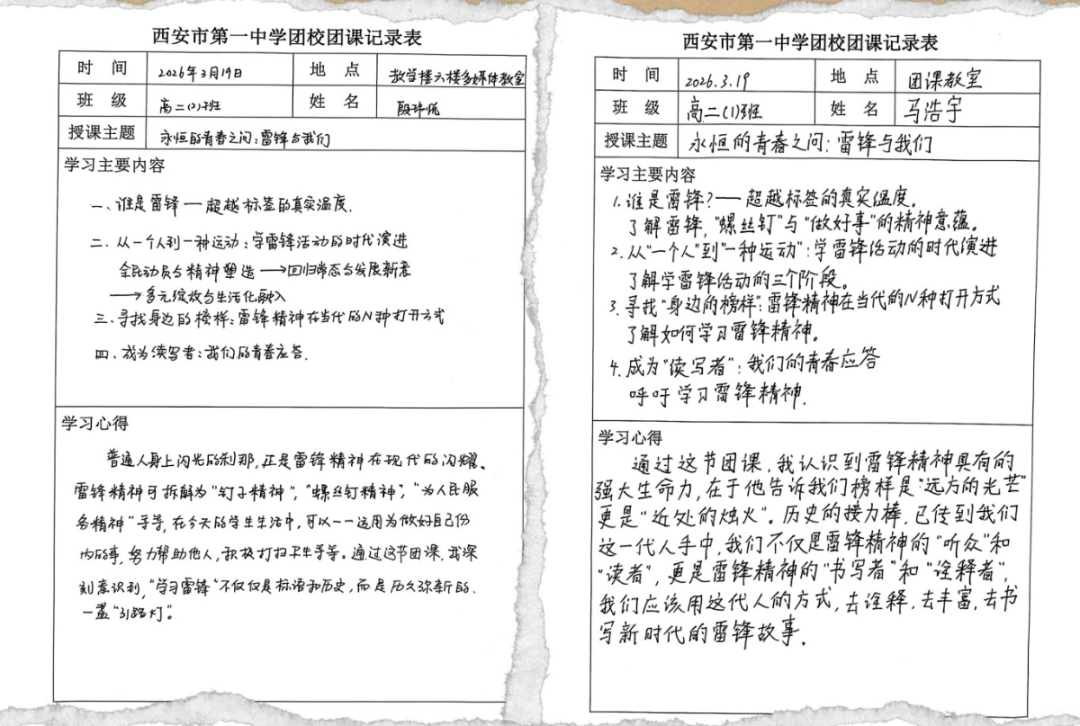 西安市第一中学团校团课记录表
时 间 2026年3月19日 地 点 教学楼六楼多媒体教室
班 级 高二(2)班 姓 名
授课主题 永恒的青春之问:雷锋与我们
学习主要内容
一、谁是雷锋——超越标签的真实温度.
二、从一个人到一种运动:学雷锋活动的时代演进
全民动员与精神塑造→回归常态与发展新意
→多元绽放与生活化融入
三、寻找身边的榜样:雷锋精神在当代的N种打开方式
四、成为续写者:我们的青春应答.
学习心得
普通人身上闪光的刹那,正是雷锋精神在现代的闪耀、
雷锋精神可拆解为"钉子精神","螺丝钉精神","为人民服
务精神"等等,在今天的学生生活中,可以一一运用为做好自己份
内的事,努力帮助他人,积极打扫卫生等等。通过这节团课,我深
刻意识到,"学习雷锋"不仅仅是标语和历史,而是历久弥新的、
一盏"引路灯"。
西安市第一中学团校团课记录表
时 间 2026.3.19 地 点 团课教室
班 级 高二(1)班 姓 名 马浩宇
授课主题 永恒的青春之问:雷锋与我们
学习主要内容
1.谁是雷锋?——超越标签的真实温度。
了解雷锋,"螺丝钉"与"做好事"的精神意蕴。
2.从"一个人"到"一种运动":学雷锋活动的时代演进
了解学雷锋活动的三个阶段。
3.寻找"身边的榜样":雷锋精神在当代的N种打开方式
了解如何学习雷锋精神。
4.成为"读写者":我们的青春应答
呼吁学习雷锋精神.
学习心得
通过这节团课,我认识到雷锋精神具有的
强大生命力,在于他告诉我们榜样是"远方的光芒"
更是"近处的烛火"。历史的接力棒,已传到我们
这一代人手中,我们不仅是雷锋精神的"听众"和
"读者",更是雷锋精神的"书写者"和"诠释者",
我们应该用这代人的方式,去诠释,去丰富,去书
写新时代的雷锋故事.